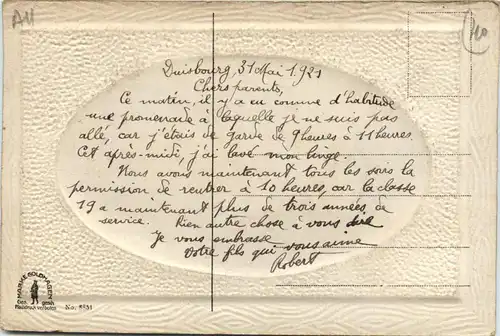 AM
10
Duisbourg, 31 Mai 1921
Chers parents,
Ce matin, il y a eu comme d'habitude
une promenade à laquelle je ne suis pas
allé, car j'étais de garde de 9 heures à 11 heures.
Cet après-midi, j'ai lavé mon linge.
Nous avons maintenant tous les soirs la
permission de rentrer à 10 heures, car la classe
19 a maintenant plus de trois années de
service. Rien autre chose à vous dire
Je vous embrasse
Votre fils qui vous aime
Robert
MARKE GOLDHAGEN
Ges. gesch.
Nachdruck verboten
No. 5831